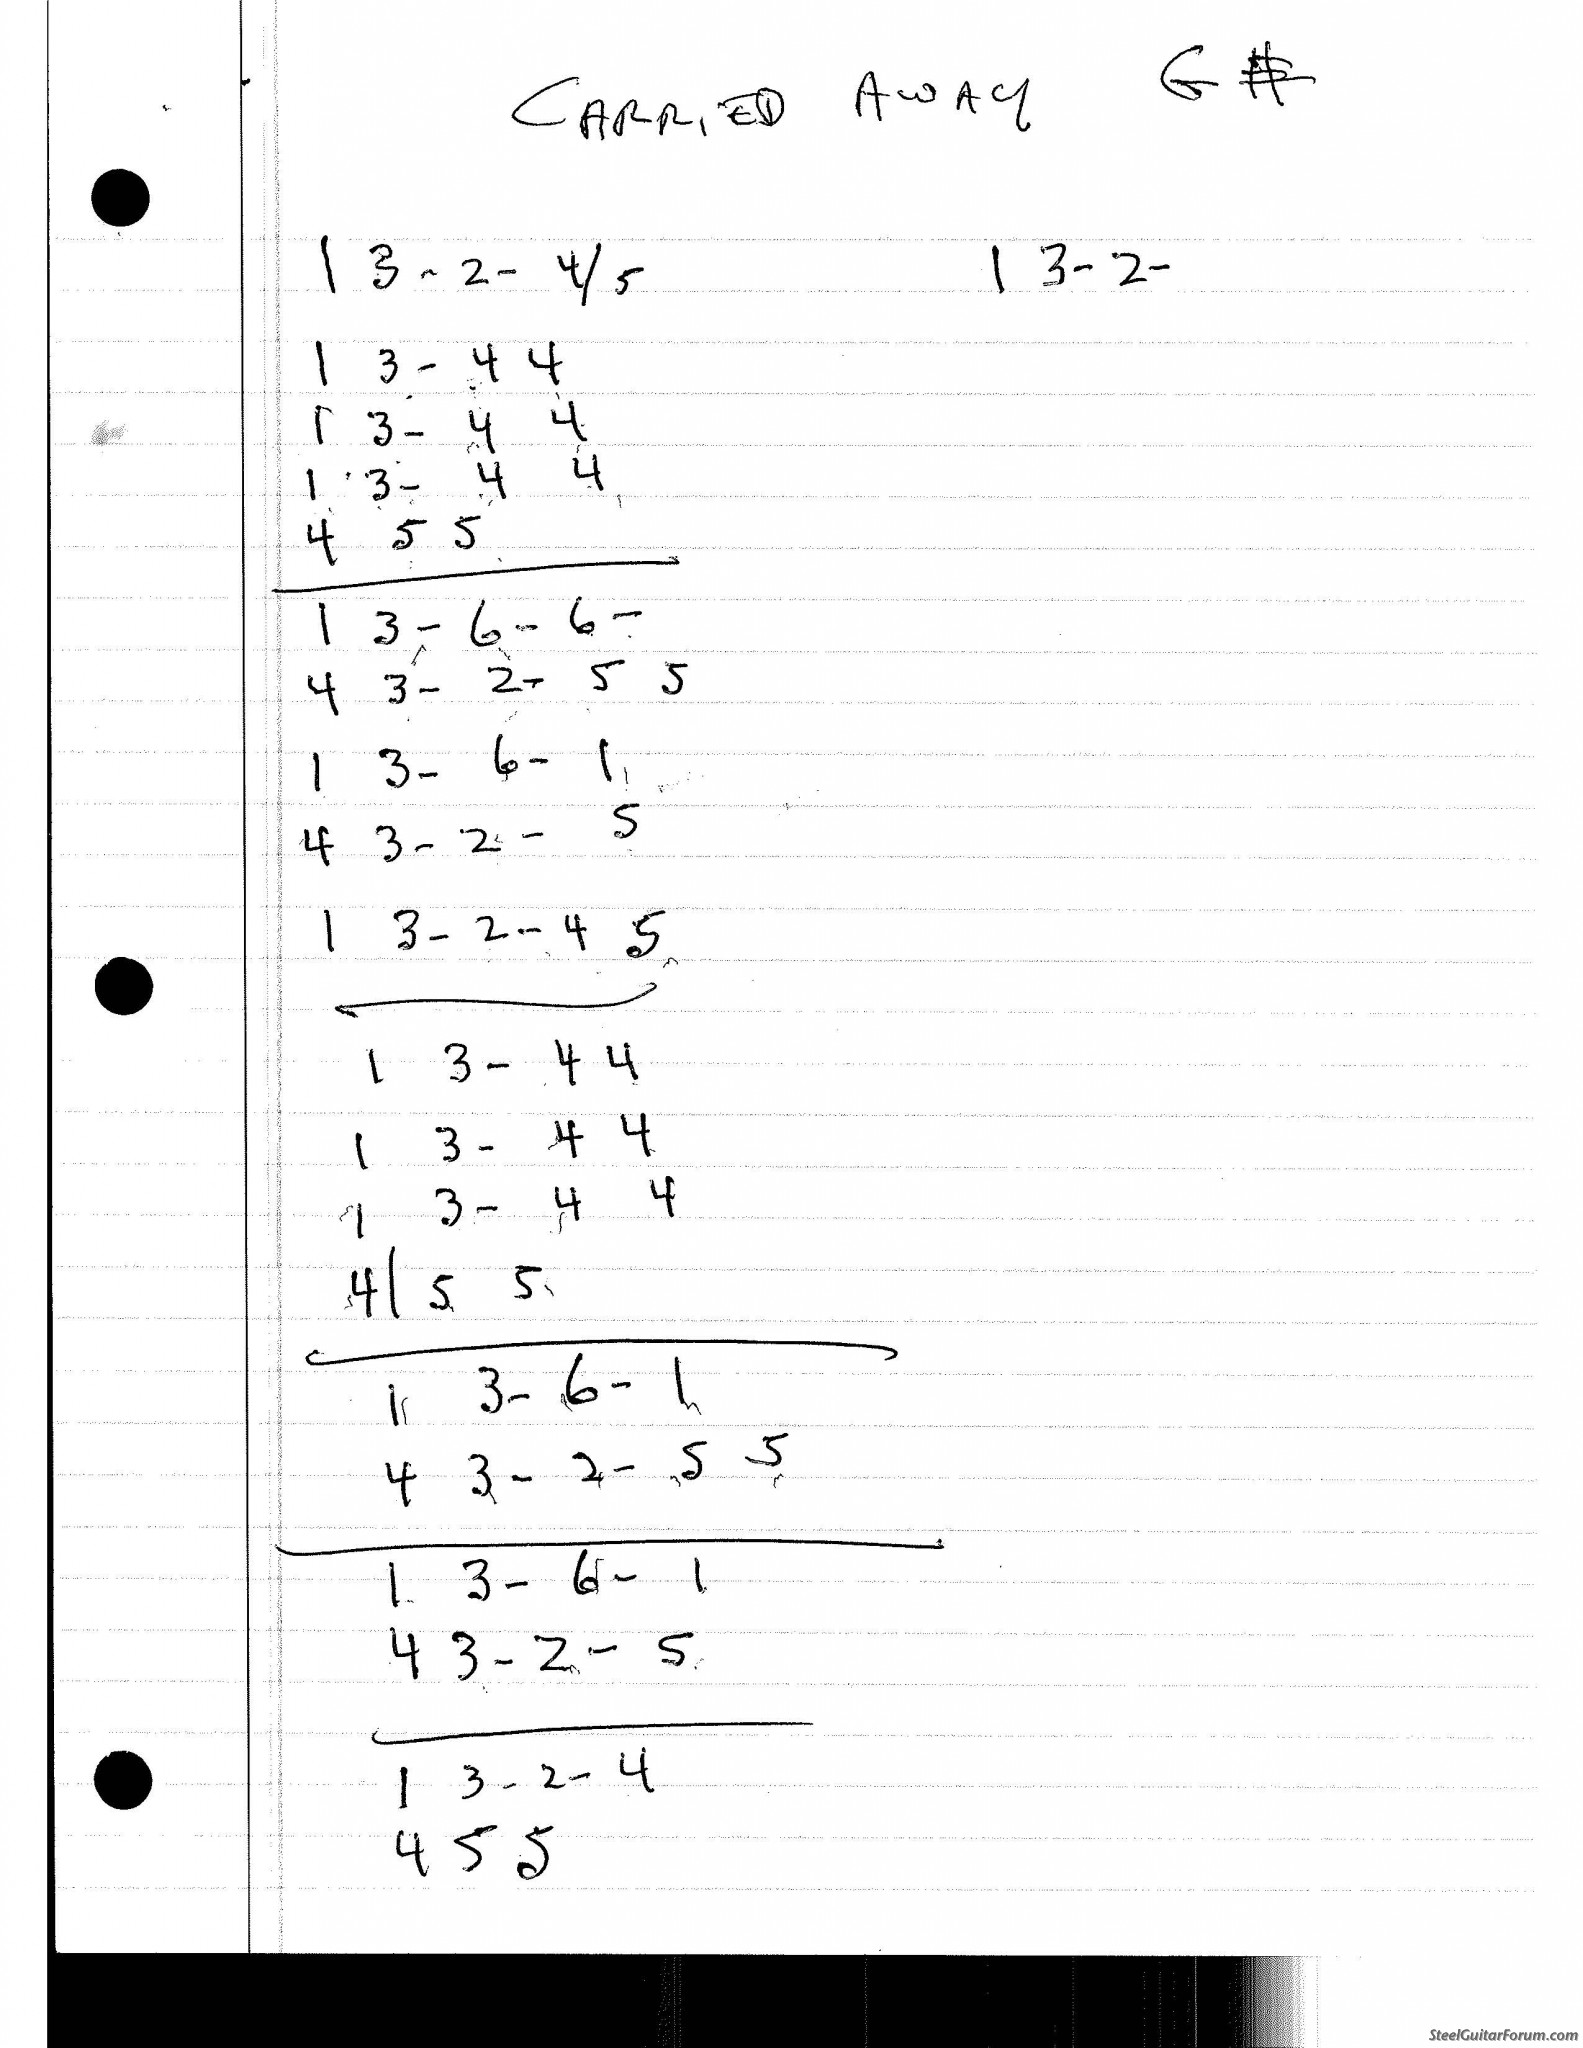 CARRIED AWAY G#
1 3- 2- 4/5 1 3- 2-
1 3- 4 4
1 3- 4 4
1 3- 4 4
4 5 5
1 3- 6- 6-
4 3- 2- 5 5
1 3- 6- 1
4 3- 2- 5
1 3- 2- 4 5
1 3- 4 4
1 3- 4 4
1 3- 4 4
4| 5 5
1 3- 6- 1
4 3- 2- 5 5
1 3- 6- 1
4 3- 2- 5
1 3- 2- 4
4 5 5
SteelGuitarForum.com